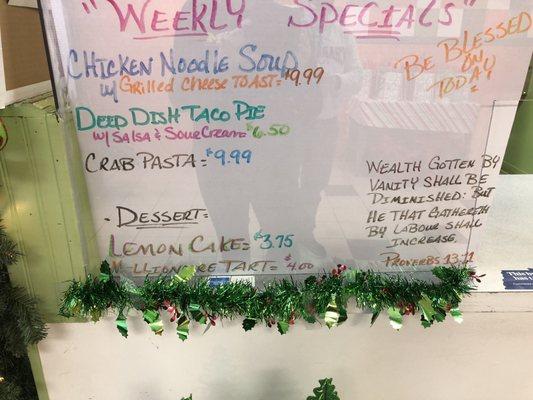 "Weekly Specials"
Chicken Noodle Soup
w/ Grilled Cheese Toast = $9.99
Deep Dish Taco Pie
w/ Salsa & Sour Cream = $6.50
Crab Pasta = $9.99
- Dessert =
Lemon Cake = $3.75
Millionaire Tart = $4.00
Be Blessed
on
Today
Wealth gotten by
vanity shall be
diminished: but
he that gathereth
by labour shall
increase.
Proverbs 13:11
This b
has t